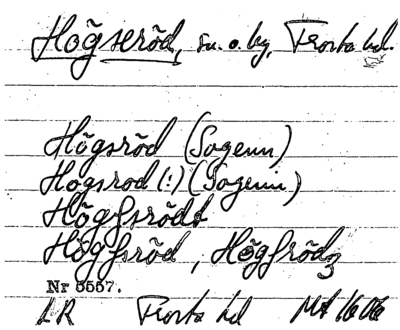 Högseröd, sn. o. by, Frosta hd.
Högsröd (Sogenn)
Hogsrod (:) (Sogenn)
Höghsrödt
Höghsröd, Höghrödz
Nr 5557.
LR Frosta hd Mt 1606